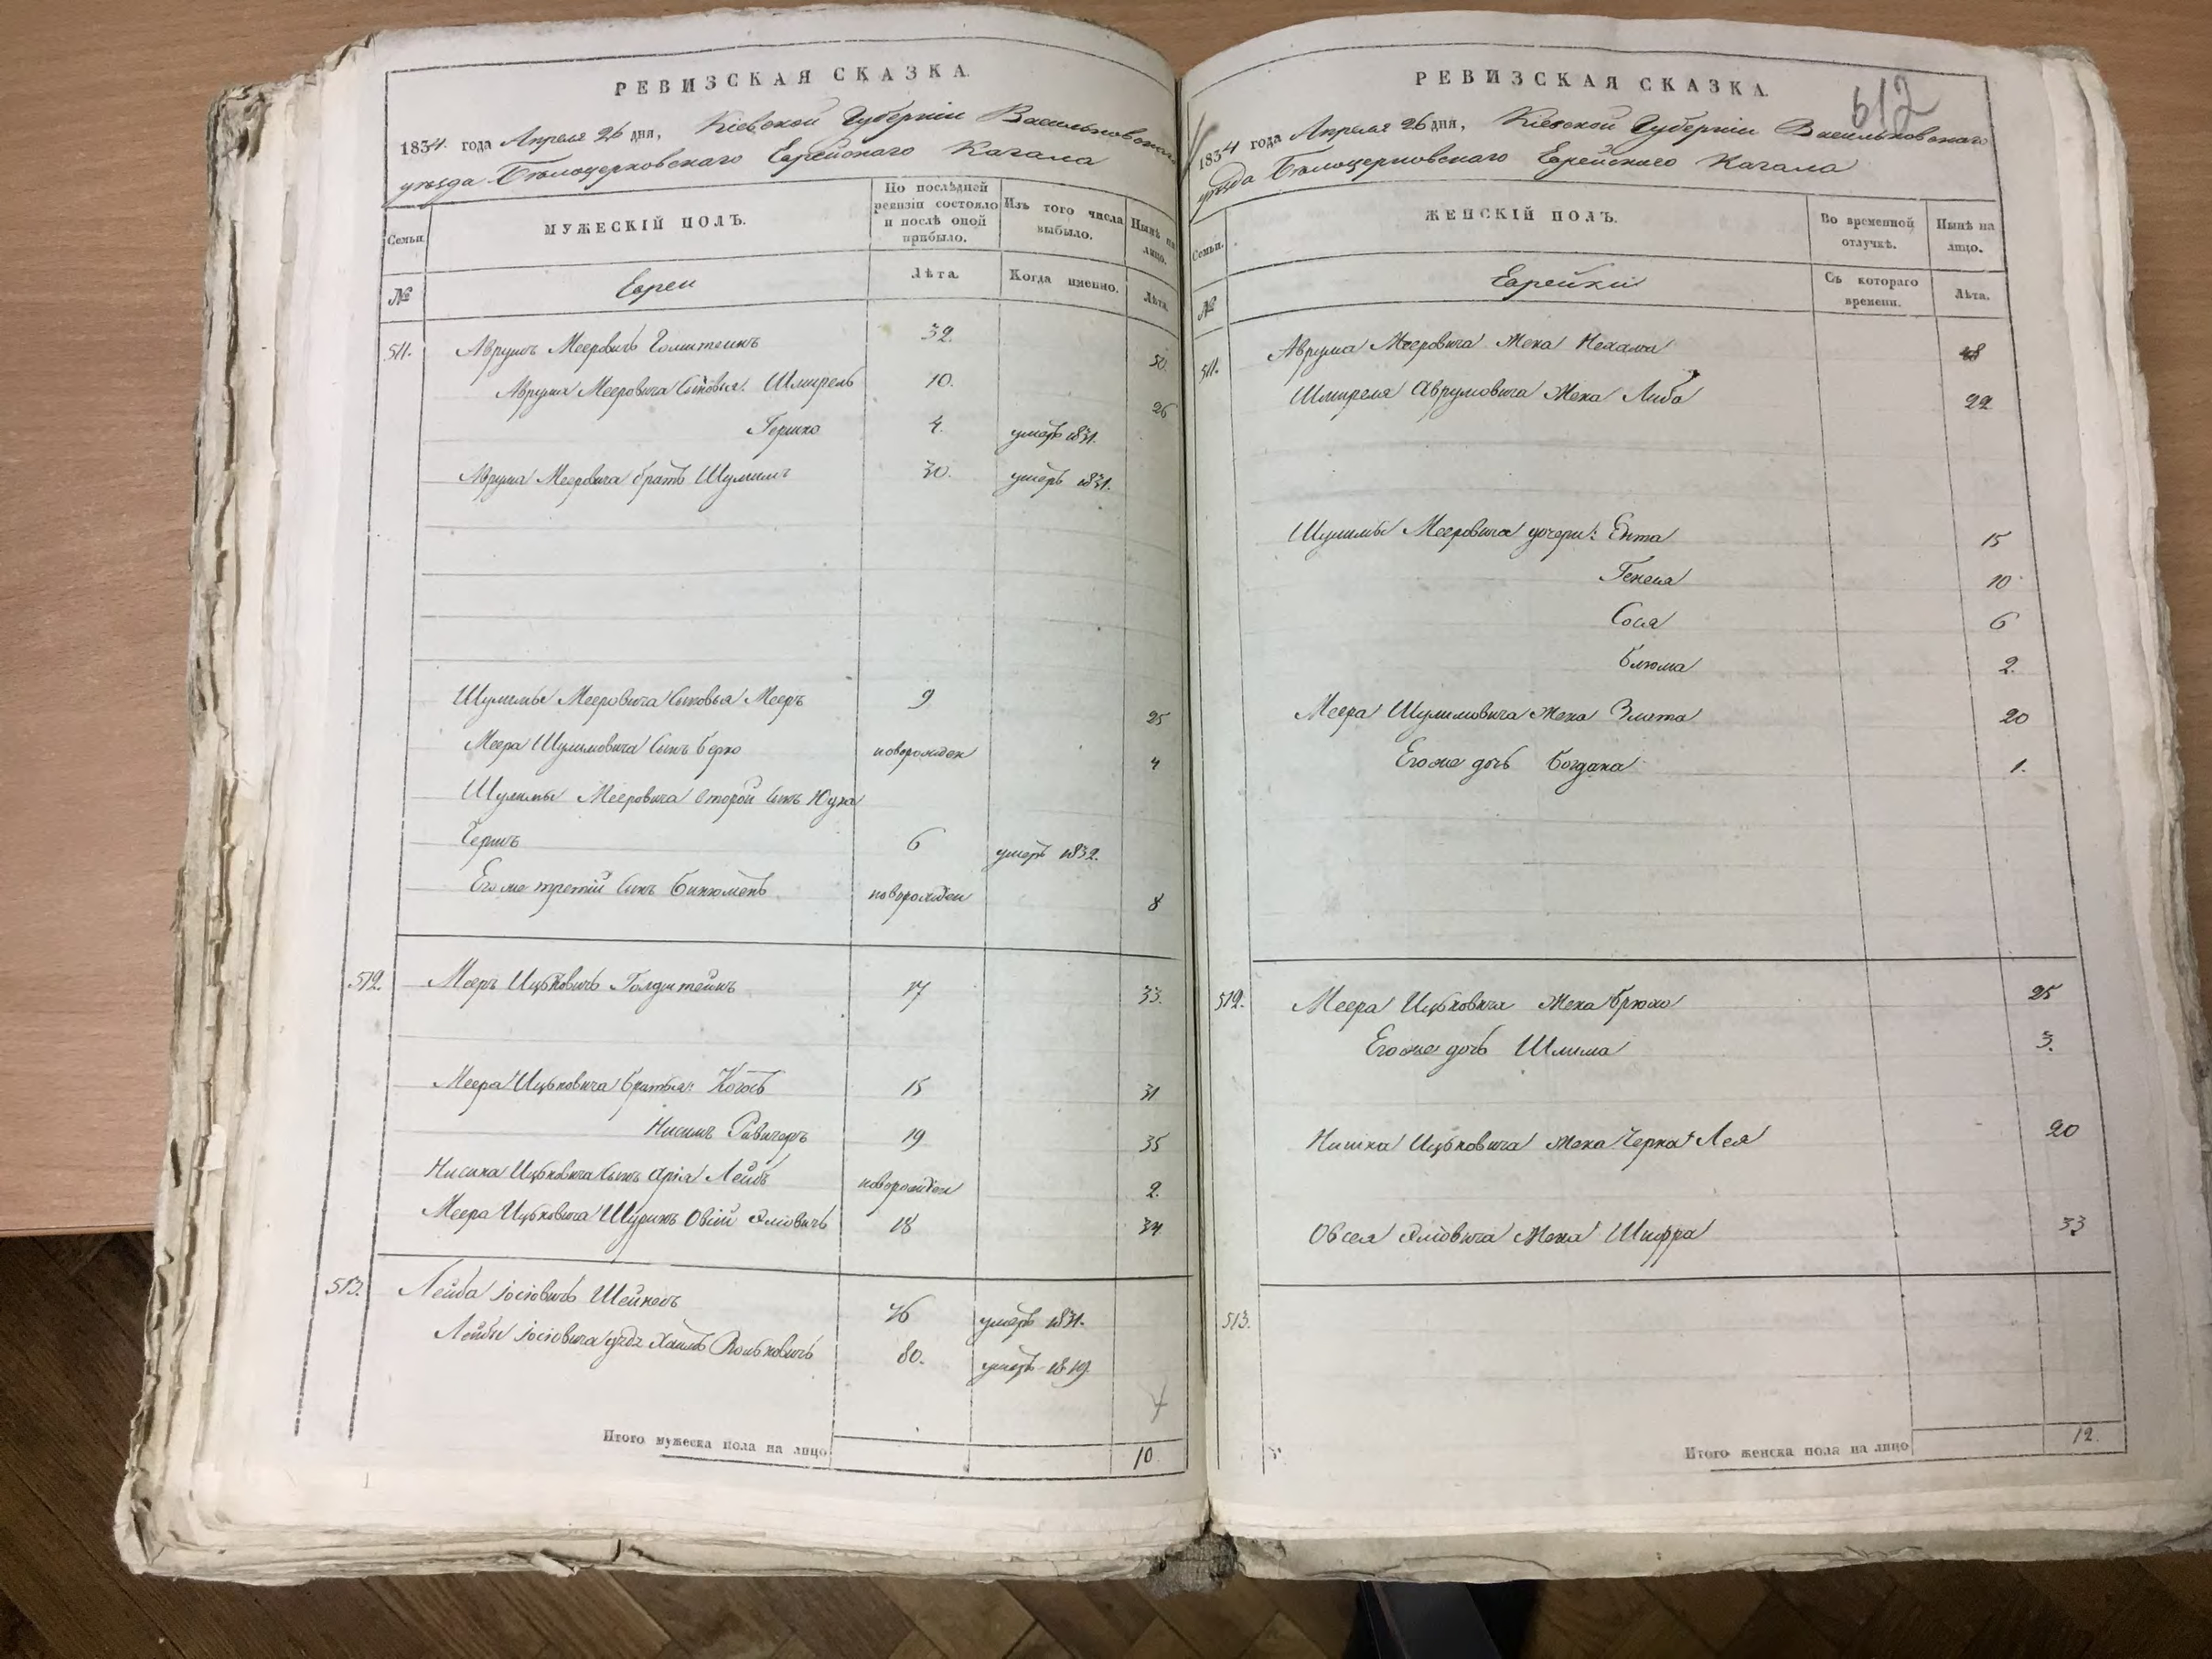 РЕВИЗСКАЯ СКАЗКА.
1834. года Апреля 26 дня, Кіевской Губерніи Васильковскаго
уѣзда Бѣлоцерковскаго Еврейскаго Кагала
Семьи.
МУЖЕСКІЙ ПОЛЪ.
По послѣдней ревизіи состояло и послѣ оной прибыло.
Изъ того числа выбыло.
Нынѣ на лицо.
№
Евреи
Лѣта.
Когда именно.
Лѣта.
511. Аврумъ Мееровичъ 32. 50.
Аврума Мееровича Сыновья: Шмирель 10. 26
Гершко 4. умеръ 1831.
Аврума Мееровича братъ Шулимъ 30. умеръ 1831.
Шулимы Мееровича Сыновья Мееръ 9 25
Меера Шулимовича Сынъ Берко новорожден 4
Шулимы Мееровича второй Сынъ Юдка
Гершъ 6 умеръ 1832.
Его же третій Сынъ Бинюменъ новорожден 8
512. Мееръ Ицьковичъ Голдштейнъ 17 33.
Меера Ицьковича братья: 15 31
Нисимъ 19 35
Ицьковича Сынъ Арія Лейбъ новорожден 2.
Меера Ицьковича Шуринъ 18 34
513. Лейба Іосіовичъ 76 умеръ 1831.
Лейбы Іосіовича дѣдъ Хаимъ Волковичъ 80. умеръ 1819.
Итого мужеска пола на лицо 10.
612
РЕВИЗСКАЯ СКАЗКА.
1834 года Апреля 26 дня, Кіевской Губерніи Васильковскаго
уѣзда Бѣлоцерковскаго Еврейскаго Кагала
Семьи.
ЖЕНСКІЙ ПОЛЪ.
Во временной отлучкѣ.
Нынѣ на лицо.
№
Еврейки
Съ котораго времени.
Лѣта.
511. Аврума Мееровича Жена Нехама 48
Шмиреля Аврумовича Жена Либа 22
Шулимы Мееровича дочери: Ента 15
Генеся 10
Сося 6
Блюма 2.
Меера Шулимовича Жена Злата 20
Его же дочь Богдана 1.
512. Меера Ицьковича Жена Брюха 25
Его же дочь Шлима 3.
Ицьковича Жена Черна Лея 20
Овсея Жена Шифра 33
513.
Итого женска пола на лицо 12.